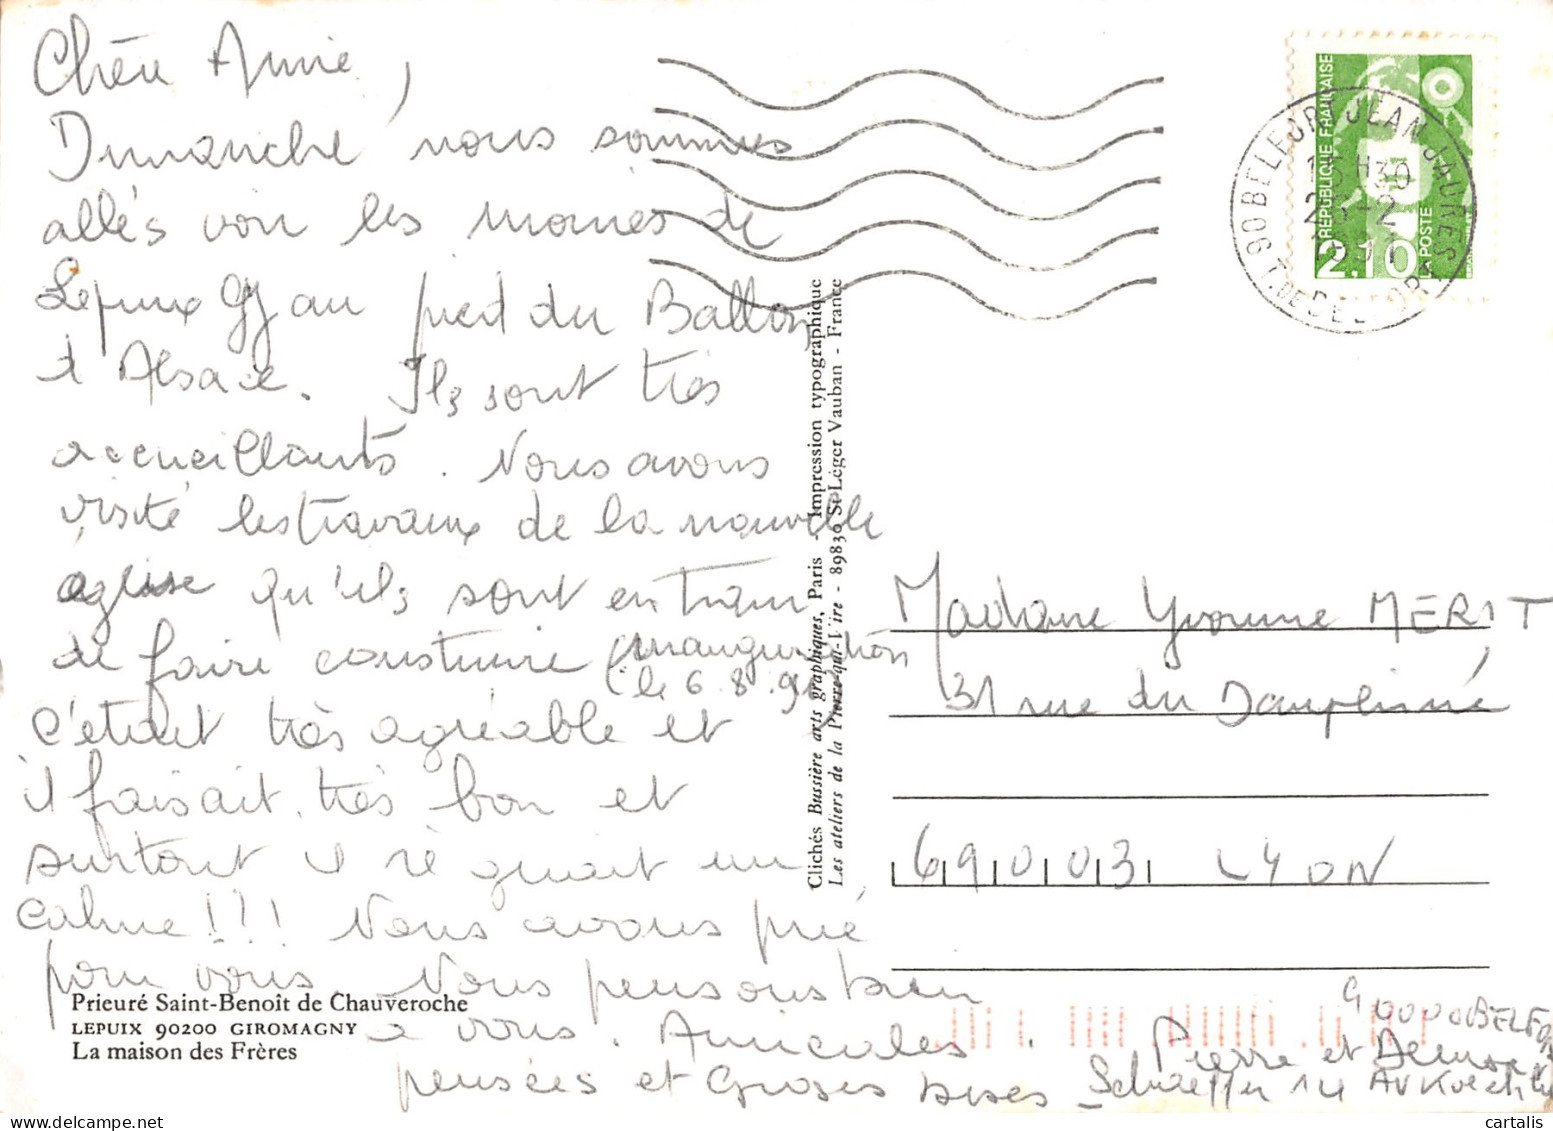 Chère Amie,
Dimanche nous sommes
allés voir les moines de
Lepuix Gy au pied du Ballon
d'Alsace. Ils sont très
accueillants. Nous avons
visité les travaux de la nouvelle
église qu'ils sont en train
de faire construire (inauguration
le 6.8.91
c'était très agréable et
il faisait très bon et
surtout il régnait un
calme!!! Nous avons prié
pour vous. Nous pensons bien
à vous. Amicales
pensées et Grosses bises
Pierre et Denise
Schaeffer 14 AV Koechlin
90000 BELFORT
Prieuré Saint-Benoît de Chauveroche
LEPUIX 90200 GIROMAGNY
La maison des Frères
Clichés Bussière arts graphiques, Paris - Impression typographique
Les ateliers de la Pierre-qui-Vire - 89830 St-Léger Vauban - France
RÉPUBLIQUE FRANÇAISE
2.10
LA POSTE
90 BELFORT JEAN JAURES
T. DE BELFORT
Madame Yvonne MERIT
31 rue du Dauphiné
69003 LYON
cartalis